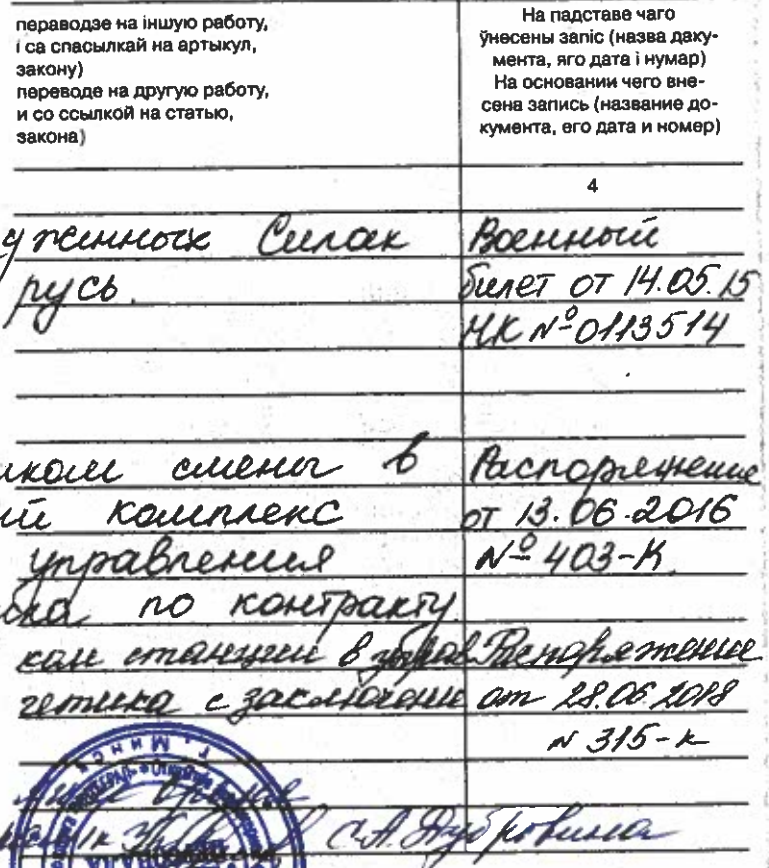 пераводзе на іншую работу,
і са спасылкай на артыкул,
закону)
переводе на другую работу,
и со ссылкой на статью,
закона)
На падставе чаго
ўнесены запіс (назва даку-
мента, яго дата і нумар)
На основании чего вне-
сена запись (название до-
кумента, его дата и номер)
4
руженных Силах
русь.
Военный
билет от 14.05.15
МК №0113514
иком смены в
ий комплекс
управления
по контракту
Распоряжение
от 13.06.2016
№ 403-К
ком станции в
гетика с заключение
Распоряжение
от 28.06.2018
№ 315-к
г. Минск
С.А. Дубровина